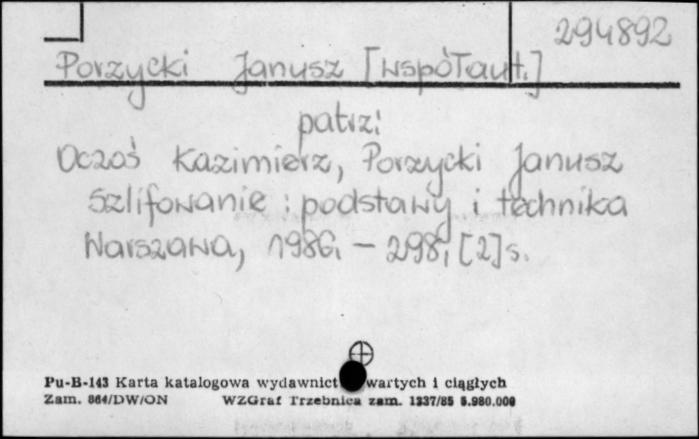 294892
Porzycki Janusz [współaut.]
patrz:
Oczoś Kazimierz, Porzycki Janusz
Szlifowanie : podstawy i technika
Warszawa, 1986. - 298, [2] s.
Pu-B-143 Karta katalogowa wydawnict wartych i ciągłych
Zam. 864/DW/ON WZGraf Trzebnica zam. 1337/85 5.980.000